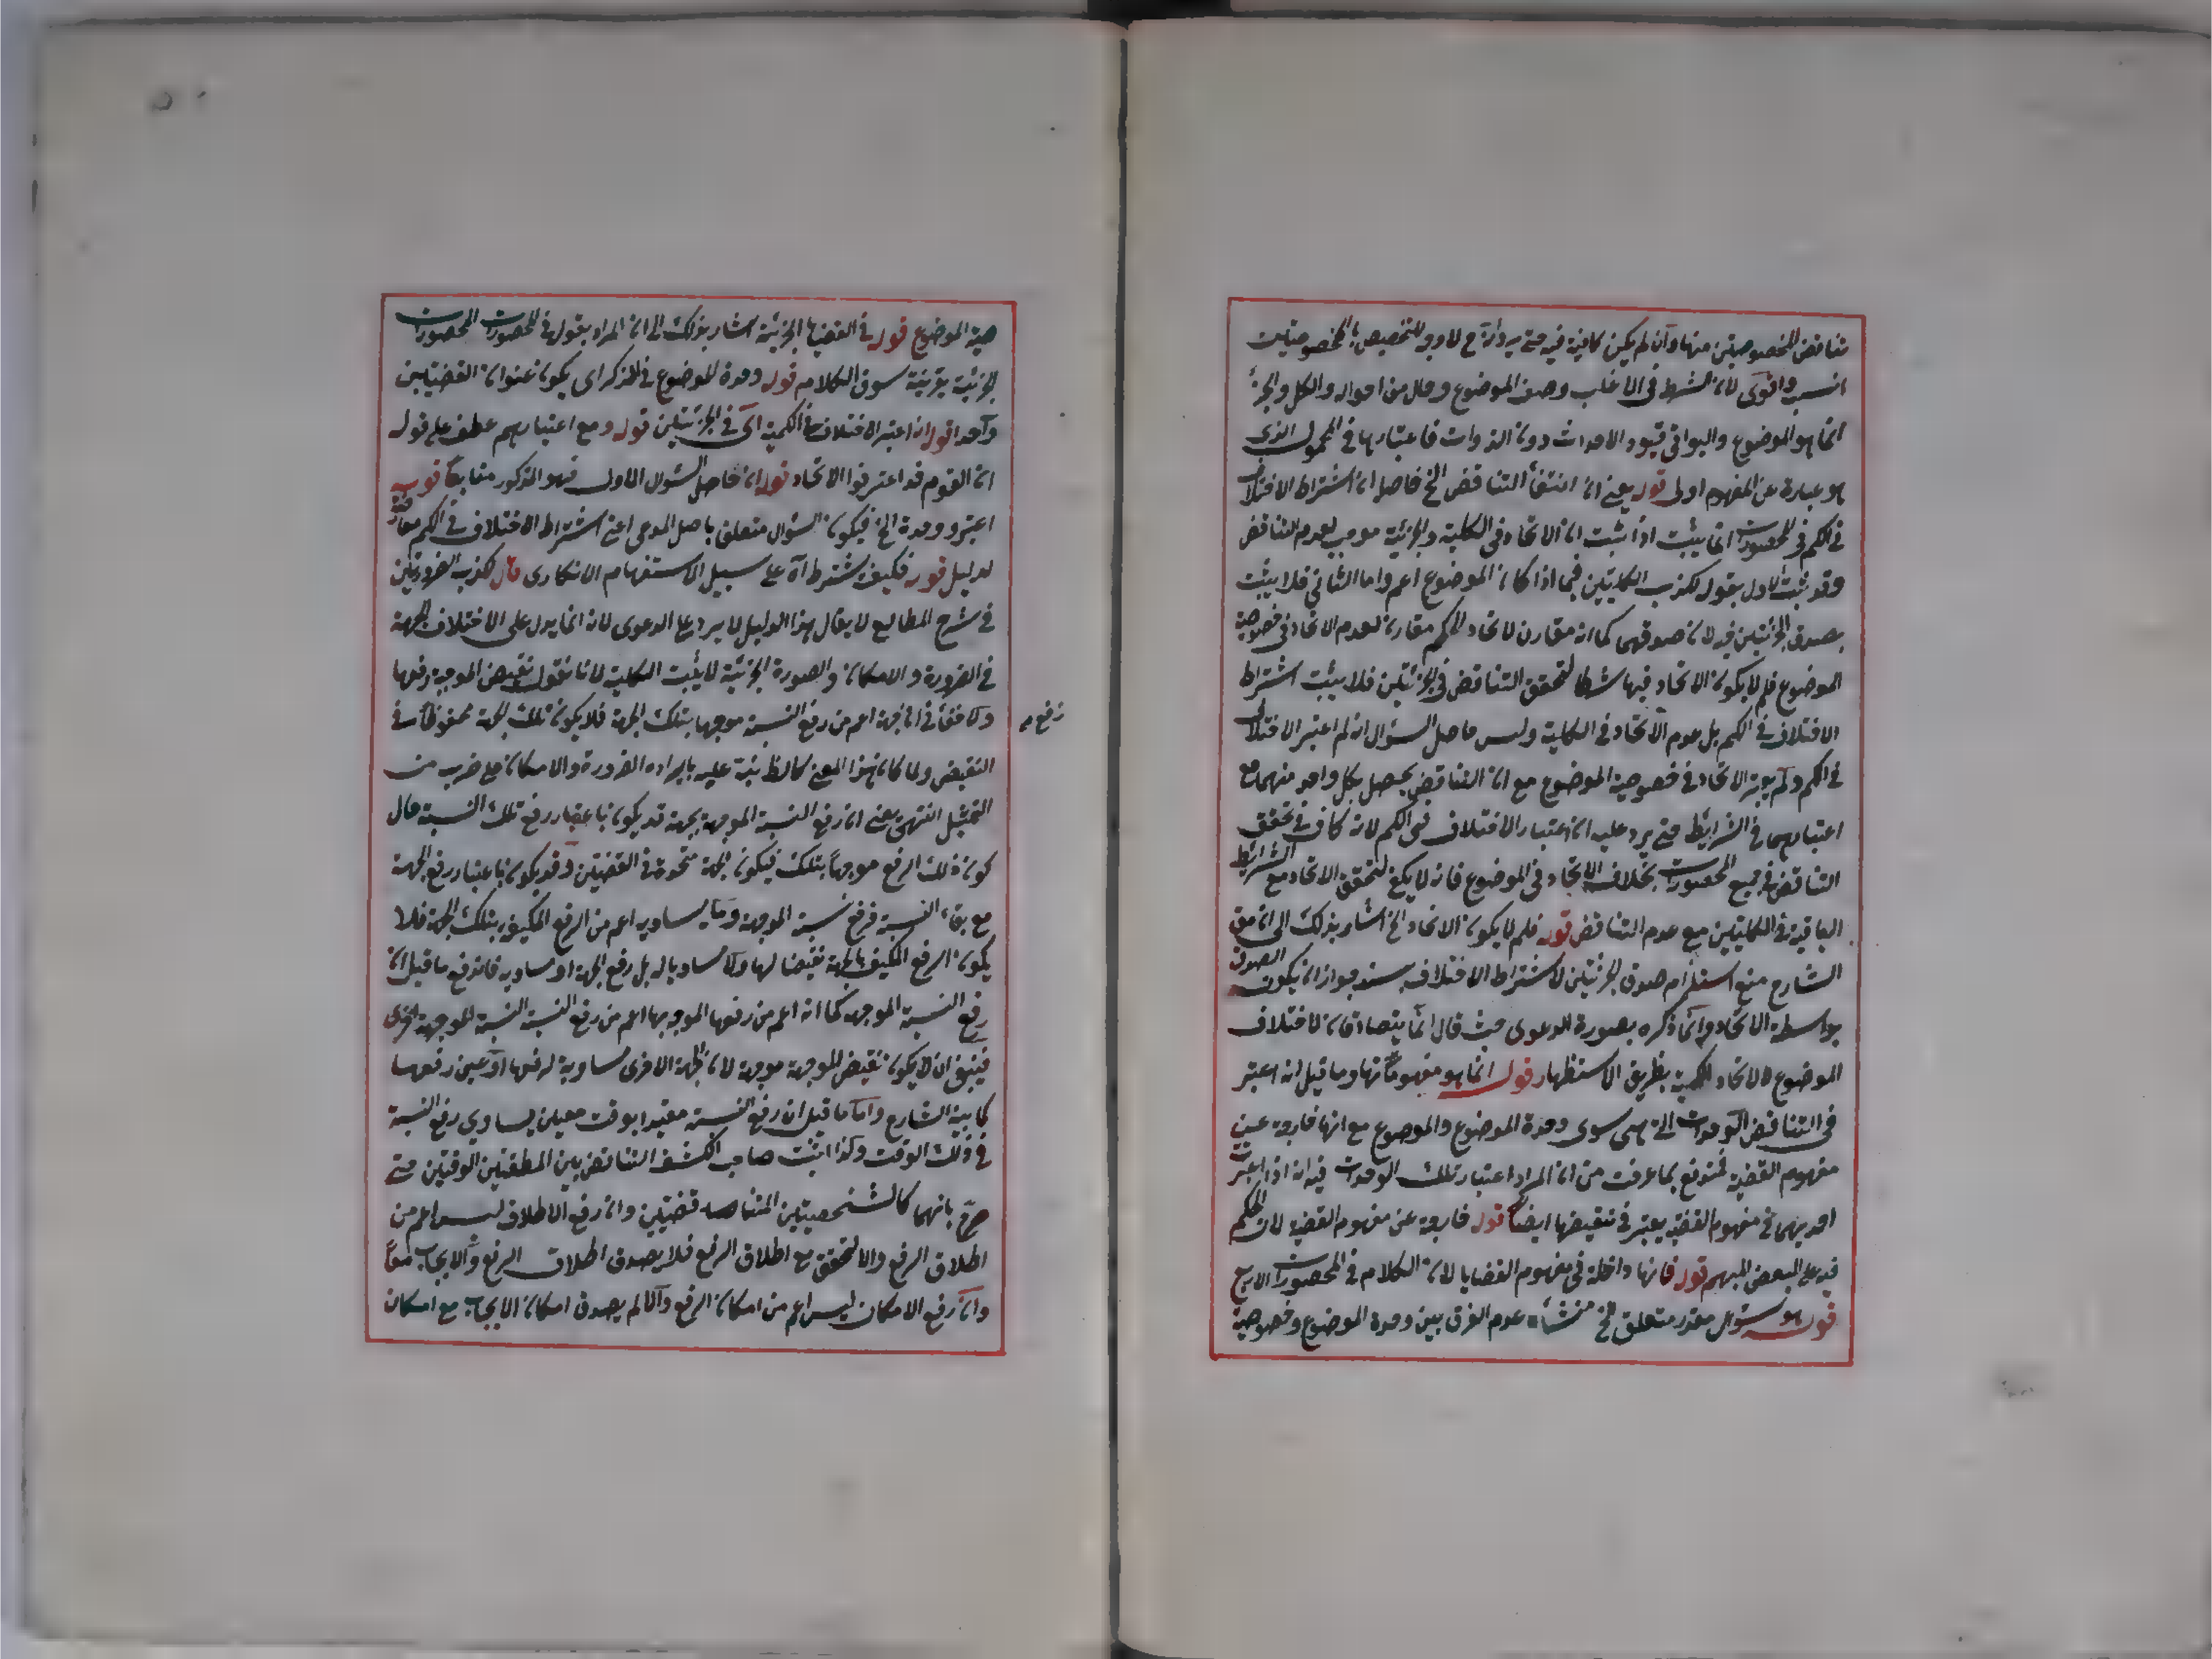 تناقض المخصوصتين منها وان لم يكن كافية فيه حتى يرد انه ح لا وجه لتخصيص بالمخصوصتين
انسب واقوى لان الشرط في الاغلب وصف الموضوع وحال من احواله والكل والجزء
انما هو الموضوع والبواقي قيود الاحداث دون الذوات فاعتبارها في المحمول الذي
هو عبارة عن المفهوم اولى قوله يعني ان انتفاء التناقض الخ حاصله ان اشتراط الاختلاف
في الكم في المحصورات انما يثبت اذا ثبت ان الاتحاد في الكلية والجزئية موجب لعدم التناقض
وقد ثبت الاول بقوله لكذب الكليتين فيما اذا كان الموضوع اعم واما الثاني فلا يثبت
بصدق الجزئيتين فيه لان صدقهما كما انه مقارن لاتحاد الكم مقارن لعدم الاتحاد في خصوصية
الموضوع فلم لا يكون الاتحاد فيها شرطا لتحقق التناقض في الجزئيتين فلا يثبت اشتراط
الاختلاف في الكم بل عدم الاتحاد في الكلية وليس حاصل السؤال انه لم اعتبر الاختلاف
في الكم ولم يعتبر الاتحاد في خصوصية الموضوع مع ان التناقض يحصل بكل واحد منهما مع
اعتبارهما في الشرايط حتى يرد عليه ان اعتبار الاختلاف في الكم لانه كاف في تحقق
التناقض في جميع المحصورات بخلاف الاتحاد في الموضوع فانه لا يكفي لتحقق الاتحاد مع الشرايط
الباقية في الكليتين مع عدم التناقض قوله فلم لا يكون الاتحاد الخ اشار بذلك الى ان حق
الشارح منع استلزام صدق الجزئيتين لاشتراط الاختلاف بسند جواز ان يكون الصدق
بواسطة الاتحاد وانما ذكره بصورة الدعوى حيث قال انما يتصادقان لاختلاف
الموضوع لا لاتحاد الكمية بطريق الاستظهار قوله انما هو مفهوماتها وما قيل انه اعتبر
في التناقض الوحدات التي هي سوى وحدة الموضوع والموضوع مع انها خارجة عن
مفهوم القضية فمندفع بما عرفت من ان المراد اعتبار تلك الوحدات فيه انه اذا اعتبرت
احديهما في مفهوم القضية يعتبر في نقيضها ايضا قوله خارجة عن مفهوم القضية لان الحكم
فيه على البعض المبهم قوله فانها داخلة في مفهوم القضايا لان الكلام في المحصورات الاربع
قوله هو سؤال مقدر متعلق الخ منشاه عدم الفرق بين وحدة الموضوع وخصوصية
صية الموضوع قوله في القضايا الجزئية اشار بذلك الى ان المراد بقوله في المحصورات المحصورات
الجزئية بقرينة سوق الكلام قوله وحدة الموضوع في الذكر اي يكون عنوان القضيتين
واحدا قوله انه اعتبر الاختلاف في الكمية اي في الجزئيتين قوله ومع اعتبارهم عطف على قوله
ان القوم قد اعترفوا الاتحاد قوله ان حاصل السؤال الاول فهو المذكور متابعا قوله
اعتبروا وحدة الخ فيكون السؤال متعلق باصل المدعى اعني اشتراط الاختلاف في الكم معارضة
لدليل قوله فكيف يشترط اه على سبيل الاستفهام الانكارى قال لكذب الضروريتين
في شرح المطالع لا يقال هذا الدليل لا يرد على الدعوى لانه انما يدل على الاختلاف الجهة
في الضرورة والامكان والصورة الجزئية لا يثبت الكلية لانا نقول نقيض الموجهة رفعها
ولا خفاء في ان جهة اعم من رفع النسبة موجها بتلك الجهة فلا يكون تلك الجهة محفوظة في
رفع
النقيض ولما كان هذا المعنى كالظ نبه عليه بايراده الضرورة والامكان على ضرب من
التمثيل انتهى يعني ان رفع النسبة الموجهة بجهة قد يكون باعتبار رفع تلك النسبة حال
كون ذلك الرفع موجها بتلك فيكون الجهة متحدة في القضيتين وقد يكون باعتبار رفع الجهة
مع بقاء النسبة فرفع نسبة الموجهة وما يساويه اعم من الرفع المكيف بتلك الجهة فلا
يكون الرفع المكيف بالجهة نقيضا لها ولا مساويا له بل رفع الجهة او مساويه فاندفع ما قيل ان
رفع النسبة الموجهة كما انه اعم من رفعها الموجه بها اعم من رفع النسبة النسبة الموجهة اخرى
فينبغي ان لا يكون نقيض الموجهة موجهة لان الجهة الاخرى مساوية لرفعها او عين رفعها
كما بينه الشارح واما ما قيل ان رفع النسبة مقيدا بوقت معين يساوي رفع النسبة
في ذلك الوقت ولذا اثبت صاحب الكشف التناقض بين المطلقتين الوقتيتين حتى
صرح بانهما كالشخصيتين المتناقضتين وان رفع الاطلاق ليس اعم من
اطلاق الرفع والا لتحقق مع اطلاق الرفع فلا يصدق اطلاق الرفع والايجاب معا
وان رفع الامكان ليس اعم من امكان الرفع والا لم يصدق امكان الايجاب مع امكان